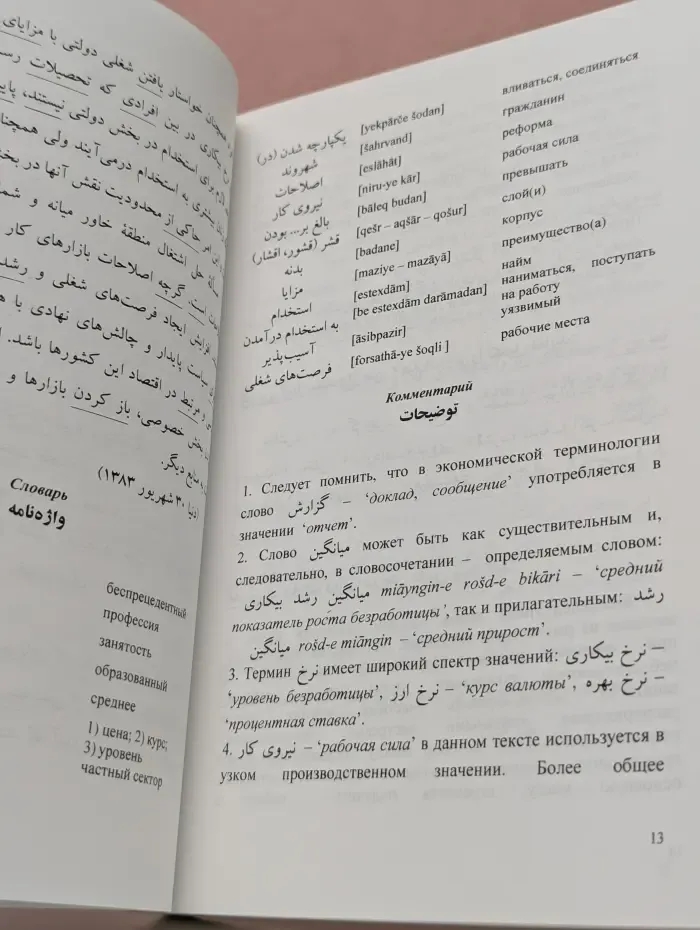 و همچنان خواستار یافتن شغلی دولتی با مزایای
بیکاری در بین افرادی که تحصیلات
لازم برای استخدام در بخش دولتی نیستند،
بیشتری به استخدام درمی‌آیند ولی
این امر حاکی از محدودیت نقش آنها در
حل اشتغال منطقهٔ خاور میانه و
است. گرچه اصلاحات بازارهای کار
افزایش ایجاد فرصت‌های شغلی و رشد
سیاست پایدار و چالش‌های نهادی با
و مرتبط در اقتصاد این کشورها باشد.
بخش خصوصی، باز کردن بازارها و
منابع دیگر.
(دنیا ۳۰ شهریور ۱۳۸۳)
Словарь
واژه‌نامه
беспрецедентный
профессия
занятость
образованный
среднее
1) цена; 2) курс;
3) уровень
частный сектор
یکپارچه شدن (در) [yekpārče šodan] вливаться, соединяться
شهروند [šahrvand] гражданин
اصلاحات [eslāhāt] реформа
نیروی کار [niru-ye kār] рабочая сила
بالغ بر... بودن [bāleq budan] превышать
قشر (قشور، اقشار) [qešr – aqšār – qošur] слой(и)
بدنه [badane] корпус
مزایا [maziye – mazāyā] преимущество(а)
استخدام [estexdām] найм
به استخدام درآمدن [be estexdām darāmadan] наниматься, поступать
на работу
آسیب‌پذیر [āsibpazir] уязвимый
فرصت‌های شغلی [forsathā-ye šoqli ] рабочие места
Комментарий
توضیحات
1. Следует помнить, что в экономической терминологии
слово گزارش – ‘доклад, сообщение’ употребляется в
значении ‘отчет’.
2. Слово میانگین может быть как существительным и,
следовательно, в словосочетании – определяемым словом:
میانگینِ رشد بیکاری miāyngin-e rošd-e bikāri – ‘средний
показатель роста безработицы’, так и прилагательным: رشد
میانگین rošd-e miāngin – ‘средний прирост’.
3. Термин نرخ имеет широкий спектр значений: نرخ بیکاری –
‘уровень безработицы’, نرخ ارز – ‘курс валюты’, نرخ بهره –
‘процентная ставка’.
4. نیروی کار – ‘рабочая сила’ в данном тексте используется в
узком производственном значении. Более общее
13